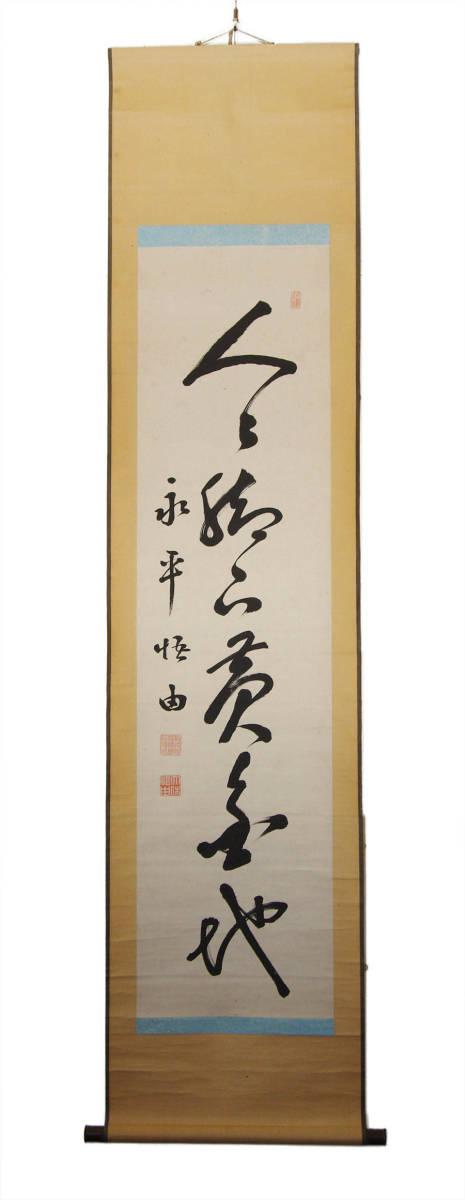 人々脚下黄金地
永平悟由